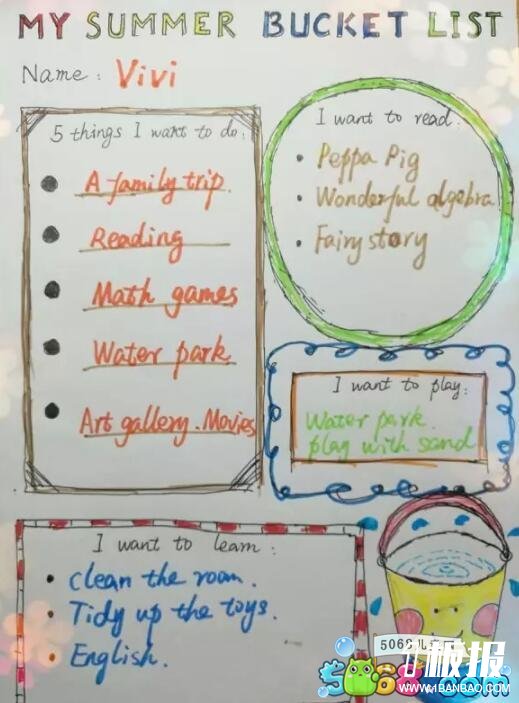 MY SUMMER BUCKET LIST
Name: Vivi
5 things I want to do:
A family trip.
Reading
Math games
Water park
Art gallery. Movies
I want to read:
Peppa Pig
Wonderful algebra
Fairy story
I want to play:
Water park.
play with sand
I want to learn:
clean the room.
Tidy up the toys.
English.
5068儿
板报
WWW.1BANBAO.COM